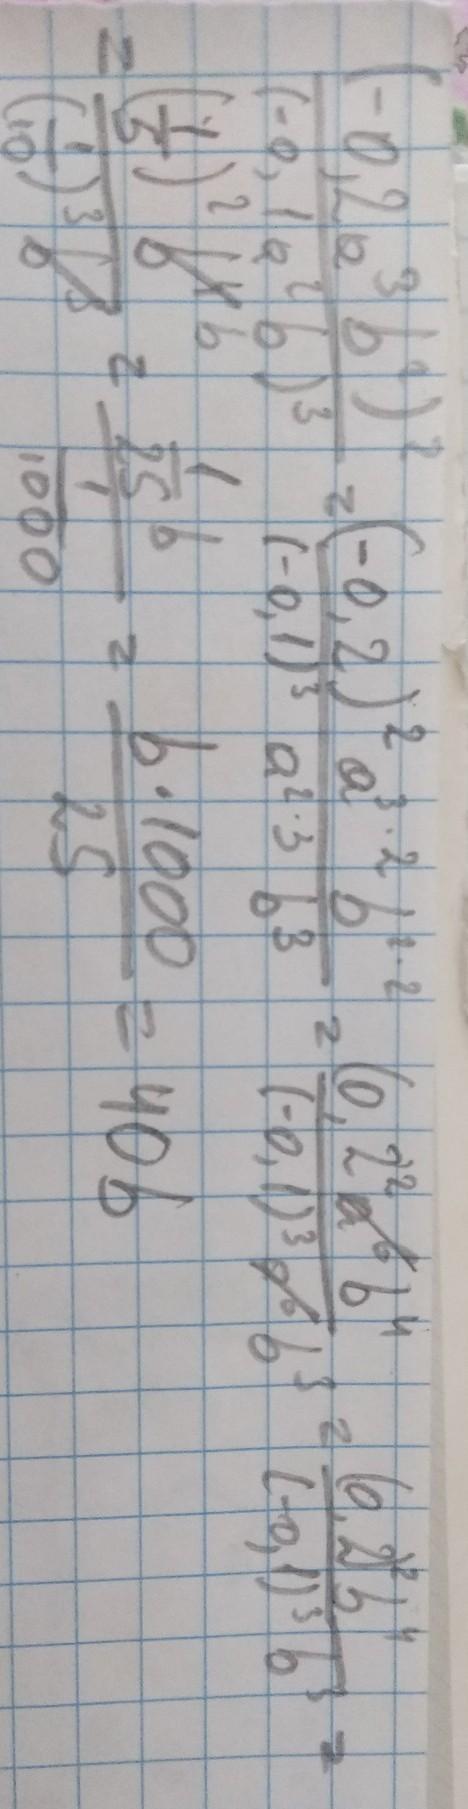 (-0,2a³b²)² / (-0,1a²b)³ = (-0,2)²a³·²b²·² / (-0,1)³a²·³b³ = (0,2²a⁶b⁴ / (-0,1)³a⁶b³ = (0,2²b⁴ / (-0,1)³b³ =
= (1/5)²b⁴b / (1/10)³b³ = 1/25 b / 1/1000 = b·1000 / 25 = 40b